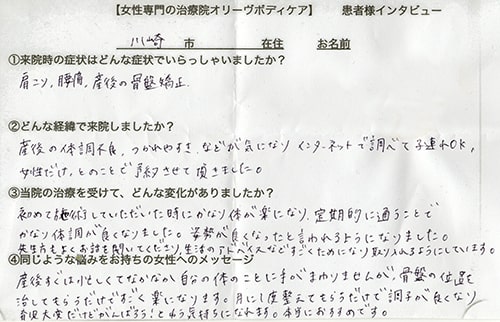 【女性専門の治療院オリーヴボディケア】 患者様インタビュー
川崎 市 在住 お名前
①来院時の症状はどんな症状でいらっしゃいましたか?
肩こり、腰痛、産後の骨盤矯正
②どんな経緯で来院しましたか?
産後の体調不良、つかれやすさ、などが気になり インターネットで調べて子連れOK、
女性だけ、とのことで予約させて頂きました。
③当院の治療を受けて、どんな変化がありましたか?
初めて施術していただいた時にかなり体が楽になり、定期的に通うことで
かなり体調が良くなりました。姿勢が良くなったと言われるようになりました。
先生方もよくお話を聞いてくださり、生活のアドバイスなどすごくためになり取り入れるようにしています。
④同じような悩みをお持ちの女性へのメッセージ
産後すぐは忙しくてなかなか自分の体のことに手がまわりませんが、骨盤の位置を
治してもらうだけですごく楽になります。月に1度整えてもらうだけで調子が良くなり
育児大変だけどがんばろう!という気持ちになれます。本当におすすめです。